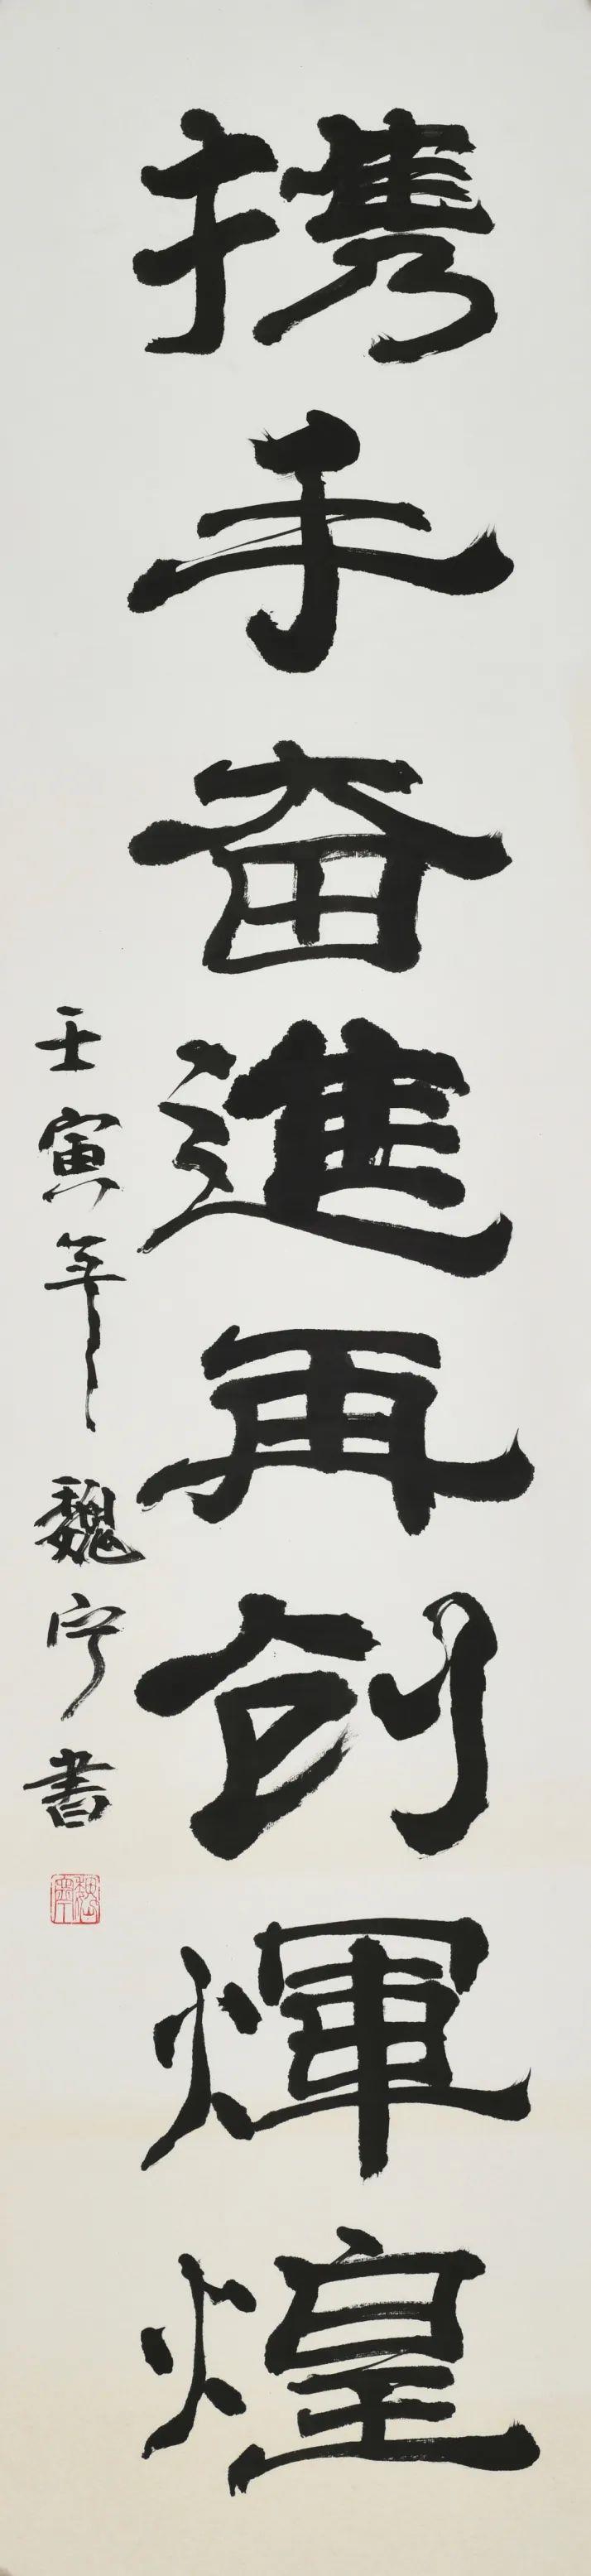 携手奋進再创煇煌
壬寅年 魏宁書